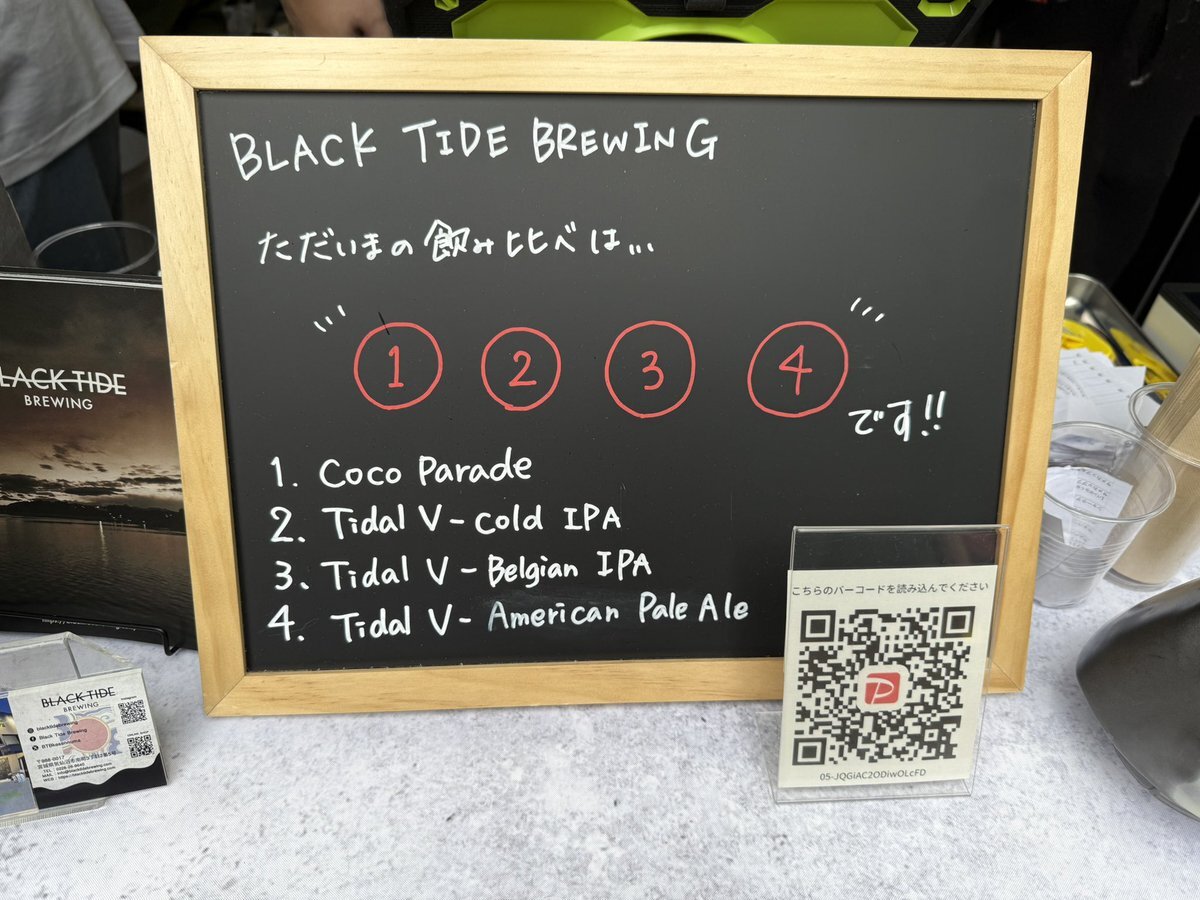 BLACK TIDE BREWING
ただいまの飲み比べは...
1 2 3 4
です!!
1. Coco Parade
2. Tidal V - Cold IPA
3. Tidal V - Belgian IPA
4. Tidal V - American Pale Ale
こちらのバーコードを読み込んでください
P
05-JQGiAC2ODiwOLcFD
LACK TIDE
BREWING
BLACK TIDE
BREWING
blacktidebrewing
Black Tide Brewing
BTBkesennuma
〒988-0017